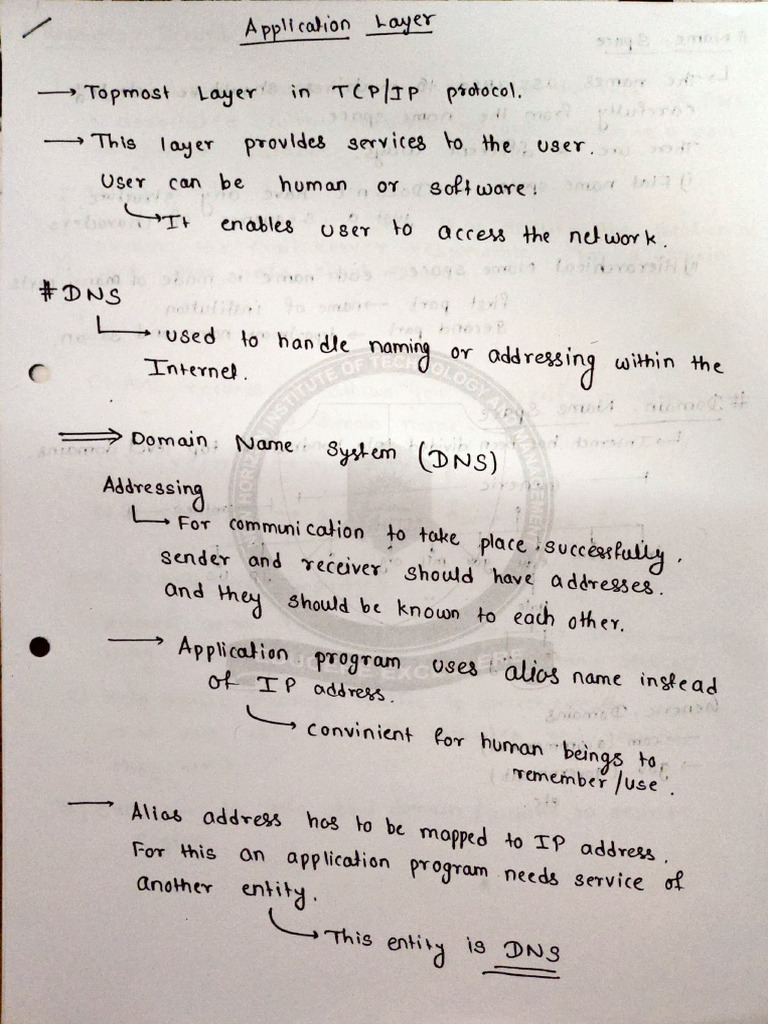 Application Layer
→ Topmost Layer in TCP/IP protocol.
→ This layer provides services to the user.
User can be human or software.
↳ It enables user to access the network.
# DNS
↳ used to handle naming or addressing within the
Internet.
⇒ Domain Name System (DNS)
Addressing
↳ For communication to take place successfully.
sender and receiver should have addresses.
and they should be known to each other.
→ Application program uses alias name instead
of IP address.
↳ convinient for human beings to
remember/use.
→ Alias address has to be mapped to IP address.
For this an application program needs service of
another entity.
↳ This entity is DNS